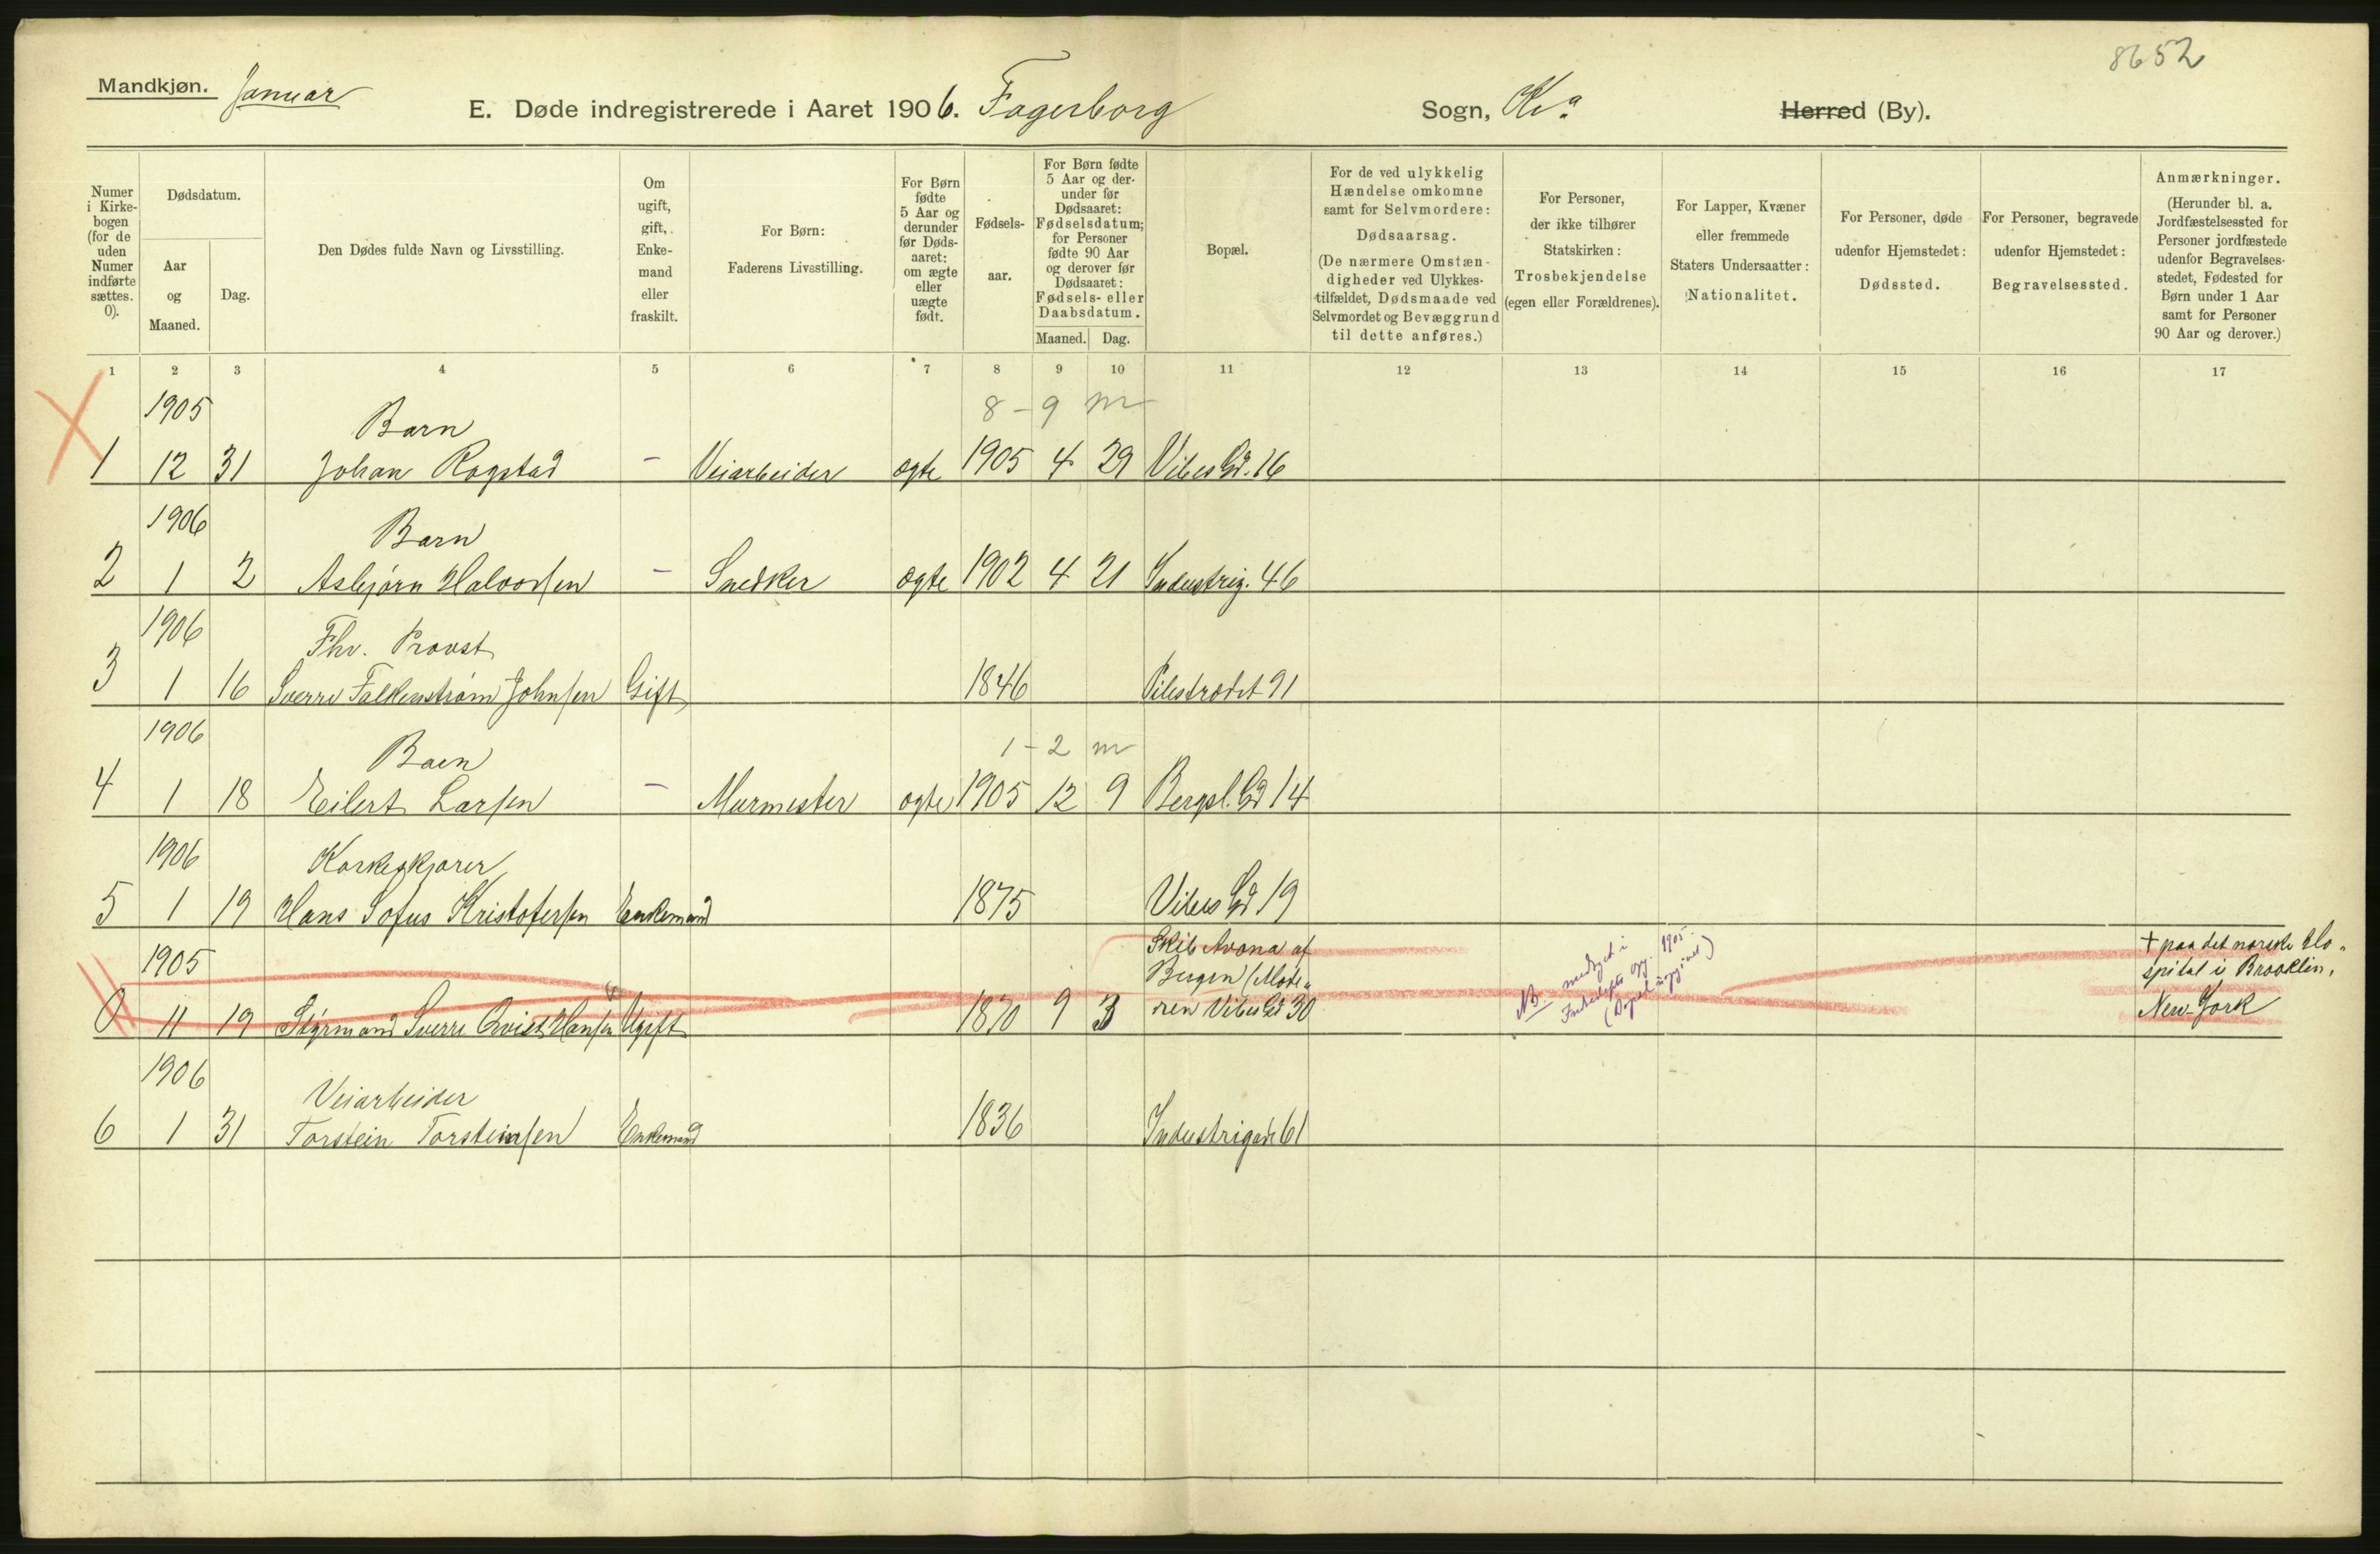 8652
Mandkjøn. Januar
E. Døde indregistrerede i Aaret 1906. Fagerborg Sogn, Kr.a Herred (By).
Numer i Kirkebogen (for de uden Numer indførte sættes. 0).
Dødsdatum.
Aar og Maaned.
Dag.
Den Dødes fulde Navn og Livsstilling.
Om ugift, gift, Enkemand eller fraskilt.
For Børn: Faderens Livsstilling.
For Børn fødte 5 Aar og derunder før Dødsaaret: om ægte eller uægte født.
Fødselsaar.
For Børn fødte 5 Aar og derunder før Dødsaaret: Fødselsdatum; for Personer fødte 90 Aar og derover før Dødsaaret: Fødsels- eller Daabsdatum.
Maaned. Dag.
Bopæl.
For de ved ulykkelig Hændelse omkomne samt for Selvmordere: Dødsaarsag. (De nærmere Omstændigheder ved Ulykkestilfældet, Dødsmaade ved Selvmordet og Bevæggrund til dette anføres.)
For Personer, der ikke tilhører Statskirken: Trosbekjendelse (egen eller Forældrenes).
For Lapper, Kvæner eller fremmede Staters Undersaatter: Nationalitet.
For Personer, døde udenfor Hjemstedet: Dødssted.
For Personer, begravede udenfor Hjemstedet: Begravelsessted.
Anmærkninger. (Herunder bl. a. Jordfæstelsessted for Personer jordfæstede udenfor Begravelsesstedet, Fødested for Børn under 1 Aar samt for Personer 90 Aar og derover.)
1 2 3 4 5 6 7 8 9 10 11 12 13 14 15 16 17
1905 Barn 8-9 m
1 12 31 Johan Rogstad - Veiarbeider ægte 1905 4 29 Vibes Gd. 16
1906 Barn
2 1 2 Asbjørn Halvorsen - Snedker ægte 1902 4 21 Industrig. 46
1906 Fhv. Provst
3 1 16 Sverre Falkenstrøm Johnsen Gift 1846 Pilestrædet 91
1906 Barn 1-2 m
4 1 18 Eilert Larsen - Murmester ægte 1905 12 9 Bergsl. Gd 14
1906 Korkeskjærer
5 1 19 Hans Sofus Kristofersen Enkemand 1875 Vibes Gd 19
1905 Skib Avona af + paa det norske Ho-
Bergen (Mode- spital i Brooklin,
0 11 19 Styrmand Sverre Qvist Hansen Ugift 1870 9 3 ren Vibes Gd 30 New-York
NB medtaget i
opg. 1905.
1906 Veiarbeider
6 1 31 Torstein Torsteinsen Enkemand 1836 Industrigade 61